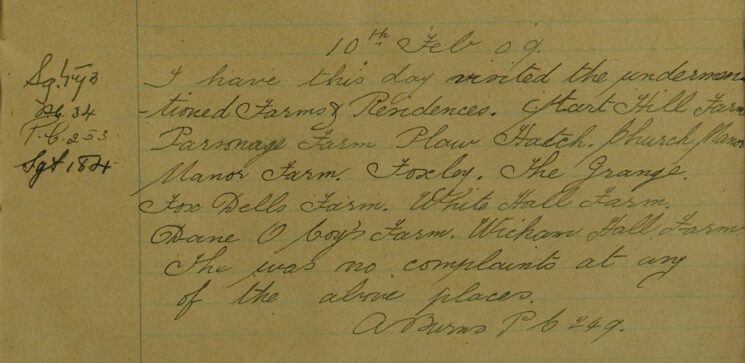 10th Feb 09.
Sgt
I have this day visited the undermen
34
-tioned Farms & Residences. Hart Hill Farm
P.C. 253.
Parsonage Farm Plaw Hatch. Church Manor
Sgt 184
Manor Farm. Foxley. The Grange.
Fox Dells Farm. White Hall Farm.
Dane O Coy's Farm. Wickam Hall Farm
The was no complaints at any
of the above places.
A Burns P C 249.